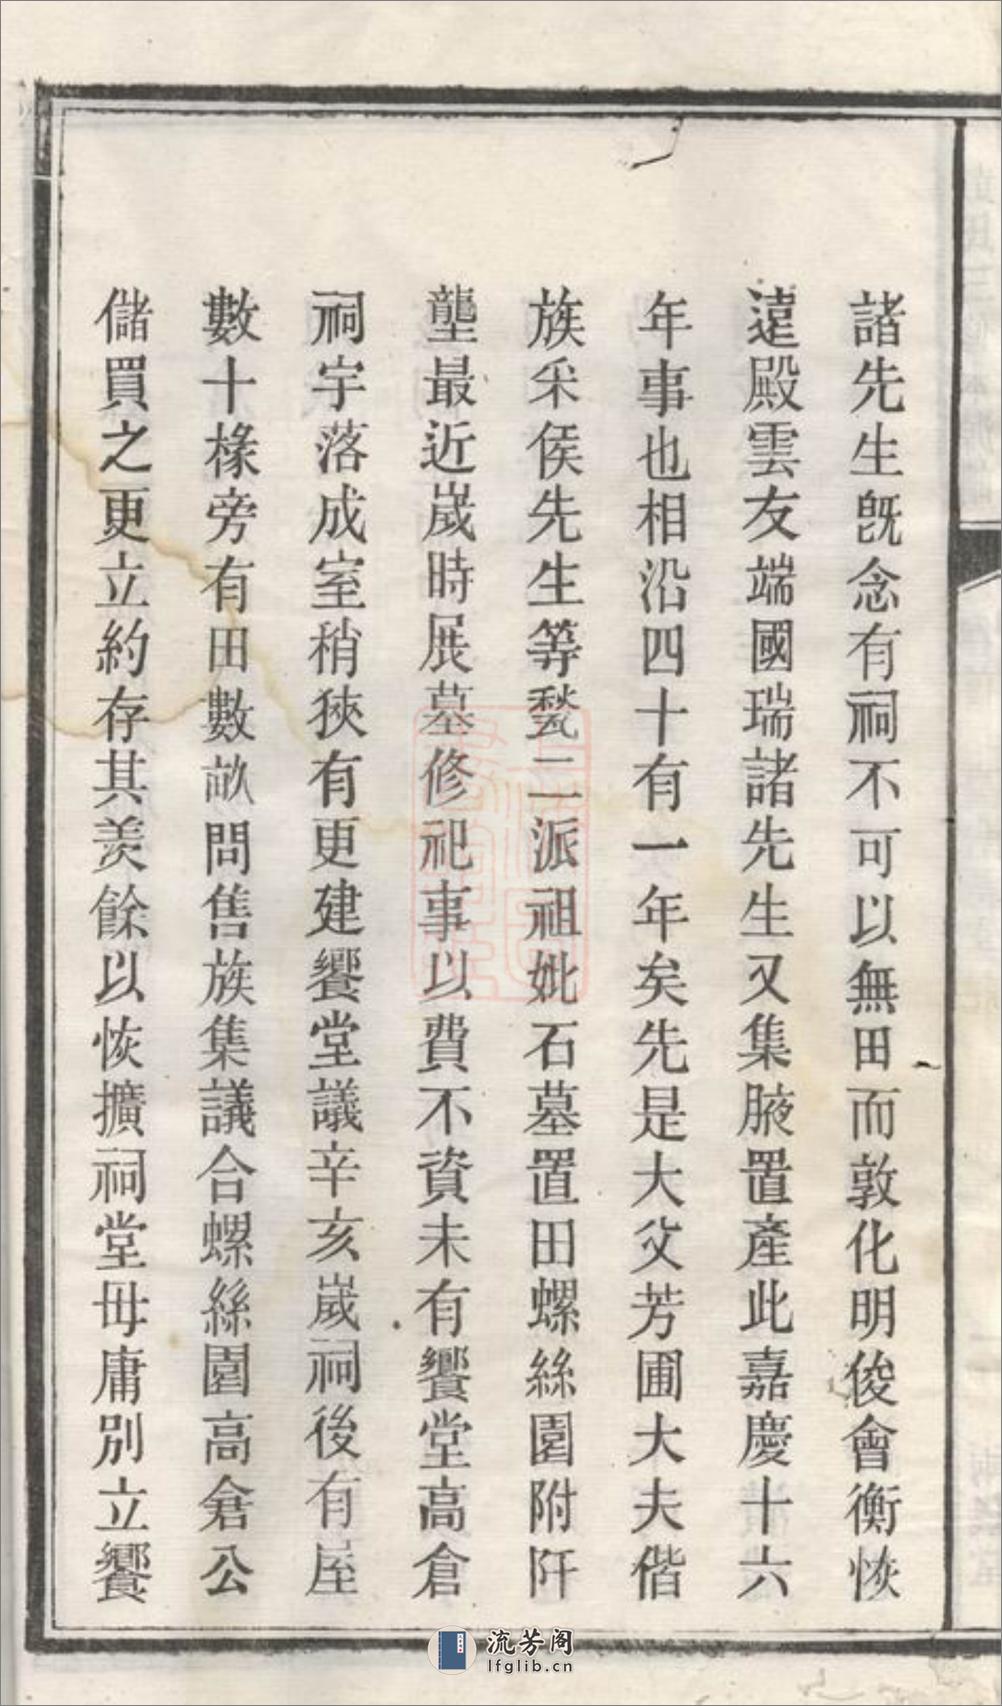 諸先生旣念有祠不可以無田而敦化明俊會衡恢
遠殿雲友端國瑞諸先生又集腋置產此嘉慶十六
年事也相沿四十有一年矣先是大父芳圃大夫偕
族釆侯先生等甃二派祖妣石墓置田螺絲園附阡
壟最近歲時展墓修祀事以費不資未有饗堂高倉
祠宇落成室稍狹有更建饗堂議辛亥歲祠後有屋
數十椽旁有田數畝問售族集議合螺絲園高倉公
儲買之更立約存其羨餘以恢擴祠堂毋庸別立饗
流芳阁
lfglib.cn